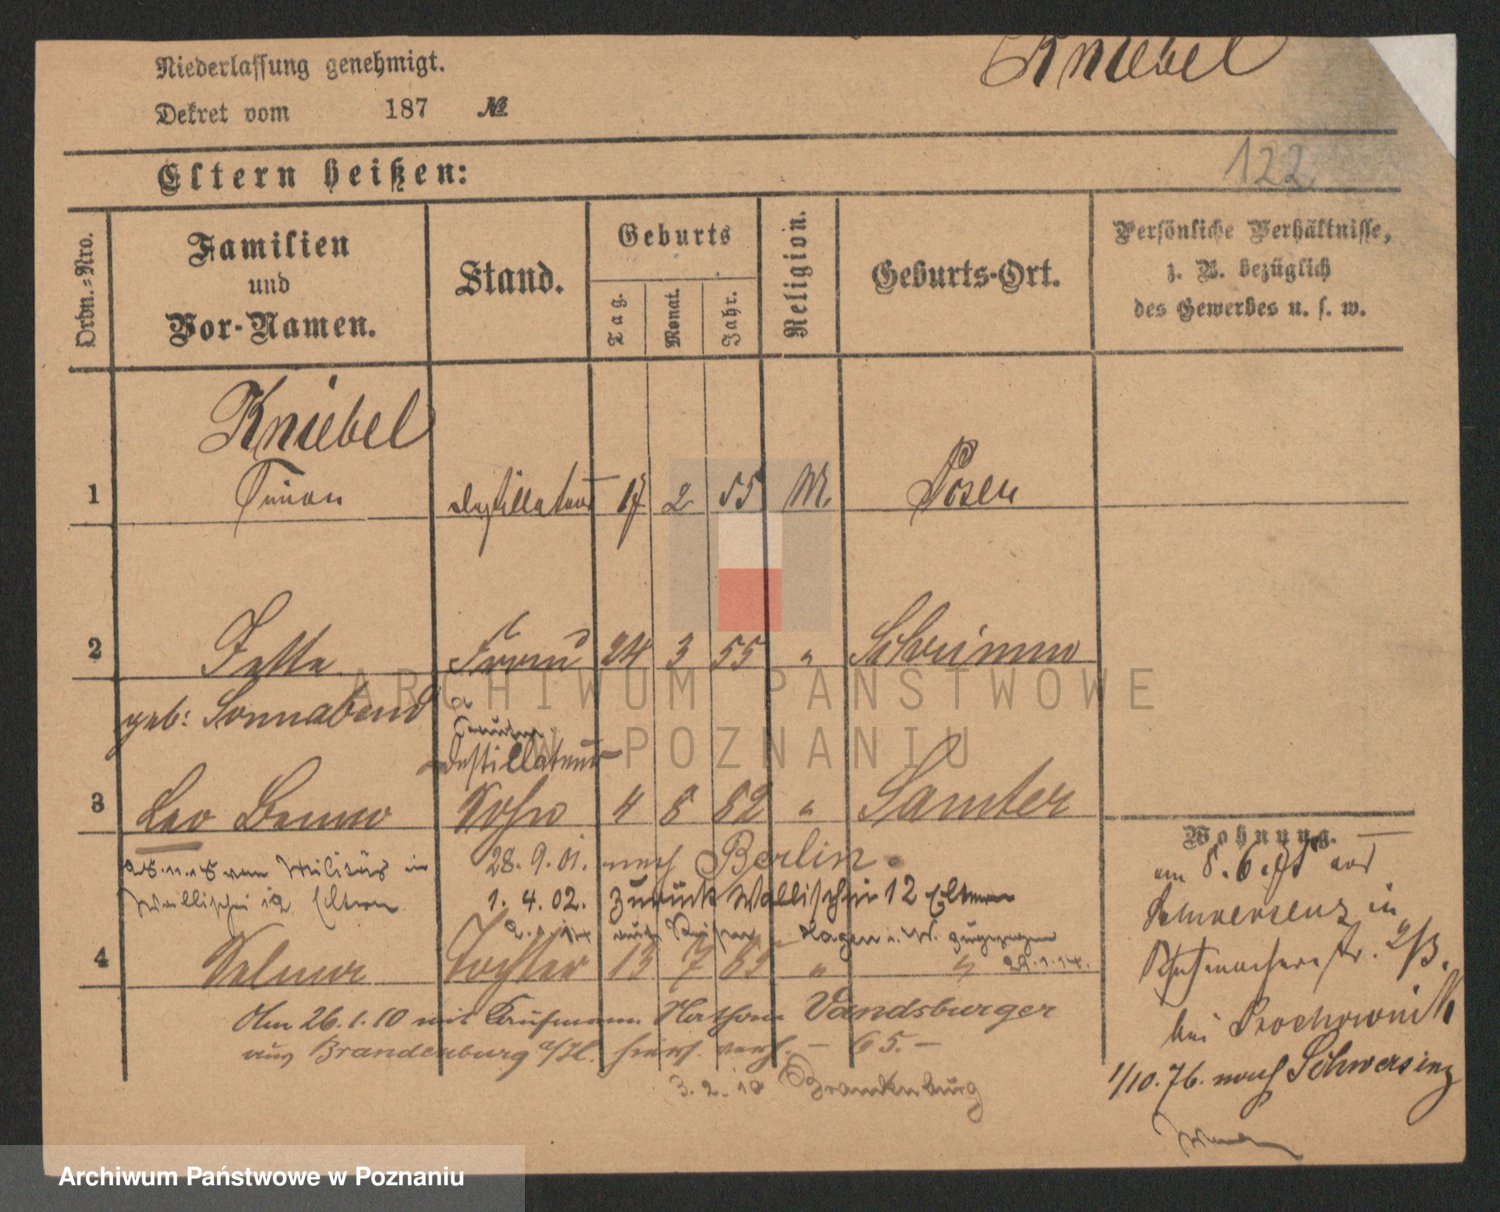 Kniebel
Niederlassung genehmigt.
Dekret vom 187 №
122.
Eltern heißen:
Ordn.-Nro.
Familien
und
Vor-Namen.
Stand.
Geburts
Tag.
Monat.
Jahr.
Religion.
Geburts-Ort.
Persönliche Verhältnisse,
z. B. bezüglich
des Gewerbes u. s. w.
Kniebel
1 Simon Destillateur 17 2 55 M. Posen
2 Jette Frau 24 3 55 " Schrimm
geb: Sonnabend
Destillateur
3 Leo Benno Sohn 4 8 82 " Samter
Wohnung.
vom Militär in 28.9.01. nach Berlin.
Wallischei 12 Eltern 1.4.02. zurück Wallischei 12 Eltern
Hagen i. W. zugezogen
4 Selma Tochter 13 7 85 " " 29.1.14.
Am 26.1.10 mit Kaufmann Nathan Vandsburger
aus Brandenburg a/H. hier verh. – 65. –
3.2.10 Brandenburg
am 8.6. aus
Schwersenz in
Schuhmacherstr. 2/3.
bei Prochownik
1/10.76. nach Schwersenz
ARCHIWUM PAŃSTWOWE
W POZNANIU
Archiwum Państwowe w Poznaniu